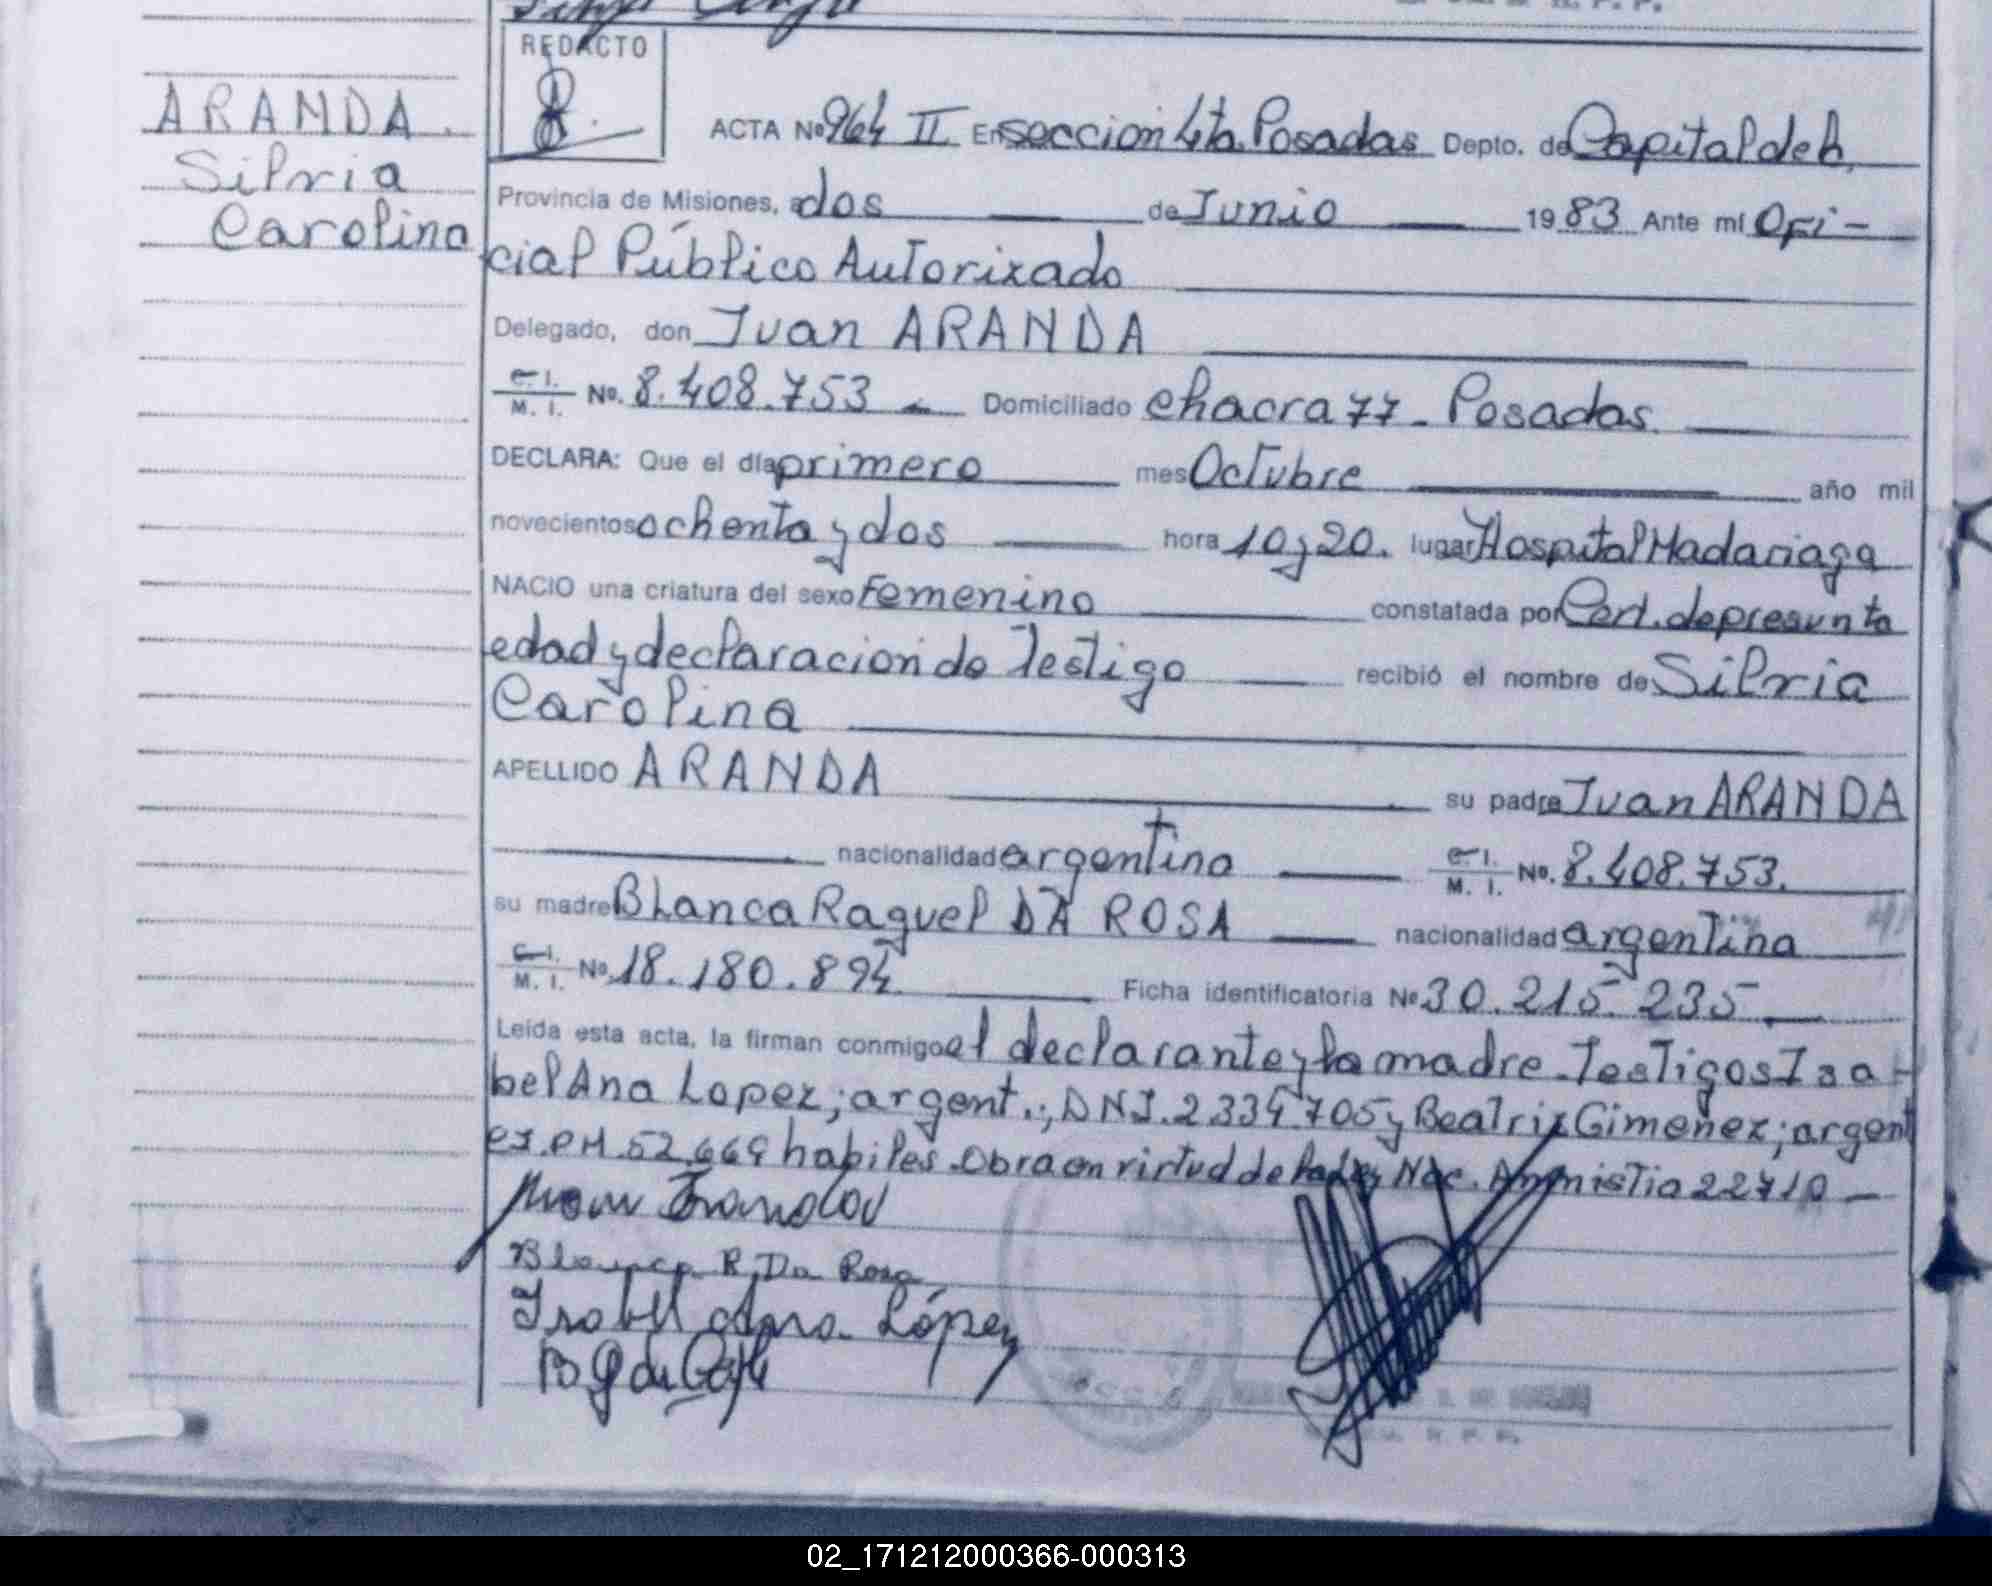 REDACTO
ARANDA
Silvia
Carolina
ACTA Nº 964 II En seccion 4ta. Posadas Depto. de Capital de la
Provincia de Misiones, a dos de Junio 1983 Ante mí Ofi-
cial Público Autorizado
Delegado, don Juan ARANDA
C. I. / M. I. No. 8.408.753 Domiciliado chacra 77 - Posadas.
DECLARA: Que el día primero mes Octubre año mil
novecientos ochenta y dos hora 10 y 20. lugar Hospital Madariaga
NACIO una criatura del sexo Femenino constatada por Cert. de presunta
edad y declaracion de Testigo recibió el nombre de Silvia
Carolina
APELLIDO ARANDA su padre Juan ARANDA
nacionalidad argentino C. I. / M. I. No. 8.408.753.
su madre Blanca Raquel DA ROSA nacionalidad argentina
C. I. / M. I. No. 18.180.894 Ficha identificatoria Nº 30.215.235
Leída esta acta, la firman conmigo el declarante y la madre. Testigos Isa-
bel Ana Lopez; argent.; DNI. 2334705 y Beatriz Gimenez; argent
habiles. Obra en virtud de Nac. Ammistia 22710
Blanca R. Da Rosa
Isabel Ana López
02_171212000366-000313